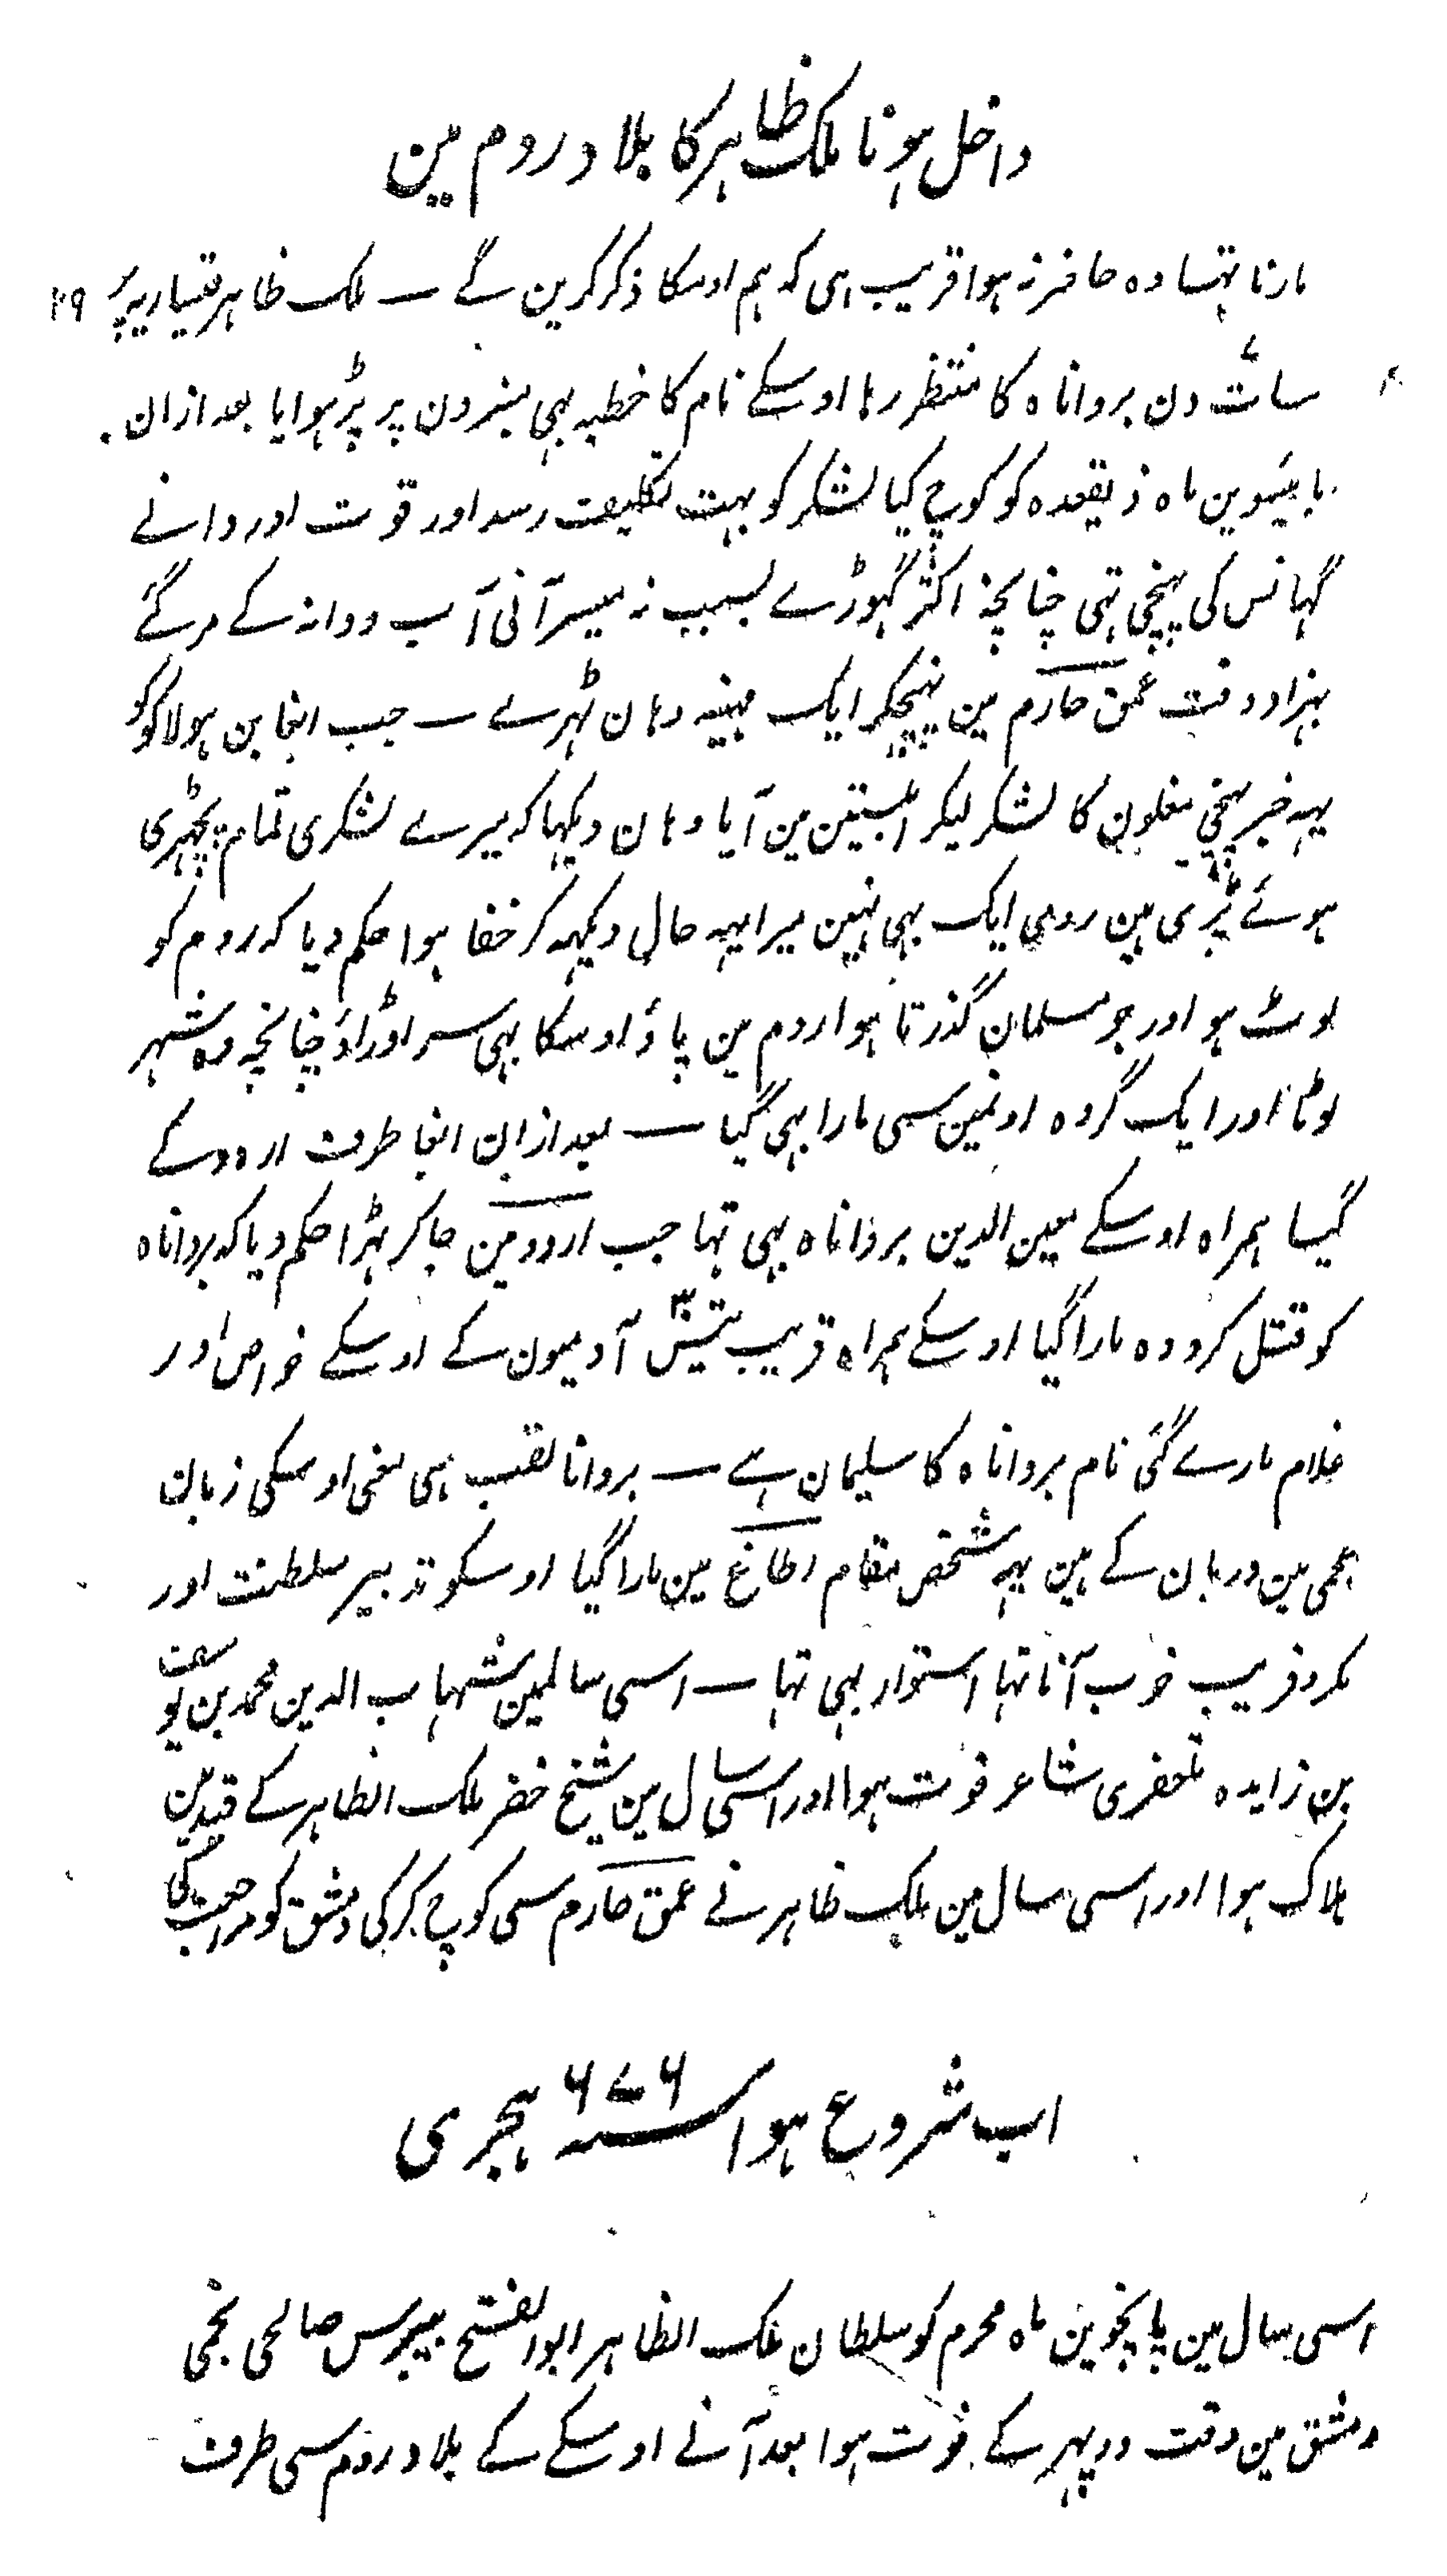 داخل ہونا ملک ظاہر کا بلاد روم مین
مارنا تہا وہ حاضر نہ ہوا قریب ہی کہ ہم اوسکا ذکر کرین گے — ملک ظاہر قیساریہ پر
سات دن برواناہ کا منتظر رہا اوسکے نام کا خطبہ بہی منبرون پر پڑہوایا بعد ازان
بائیسوین ماہ ذیقعدہ کو کوچ کیا لشکر کو بہت تکلیف رسد اور قوت اور دانے
گہانس کی پہنچی تہی چنانچہ اکثر گہوڑے بسبب نہ میسر آنی آب و دانہ کے مر گئے
بہزار دقت عمق حارم مین پہنچکر ایک مہینہ وہان ٹہرے — جب ابغا بن ہولاکو کو
یہہ خبر پہنچی مغلون کا لشکر لیکر ابلستین مین آیا وہان دیکہا کہ میرے لشکری تمام بچہڑی
ہوئے پڑی ہین رومی ایک بہی نہین مرا یہہ حال دیکہہ کر خفا ہوا حکم دیا کہ روم کو
لوٹ لو اور جو مسلمان گذرتا ہوا روم مین پاؤ اوسکا بہی سر اوڑاؤ چنانچہ وہ شہر
لوٹا اور ایک گروہ اونمین سی مارا بہی گیا — بعد ازان ابغا طرف اردو کے
گیا ہمراہ اوسکے معین الدین برواناہ بہی تہا جب اردو مین جا کر ٹہرا حکم دیا کہ برواناہ
کو قتل کرو وہ مارا گیا اوسکے ہمراہ قریب تیس آدمیون کے اوسکے خواص اور
غلام مارے گئی نام برواناہ کا سلیمان ہے — بروانا لقب ہی معنی اوسکی زبان
عجمی مین دربان کے ہین یہہ شخص مقام اطاغ مین مارا گیا اوسکو تدبیر سلطنت اور
مکر و فریب خوب آتا تہا استوار بہی تہا — اسی سالمین شہاب الدین محمد بن یوسف
بن زایدہ تلعفری شاعر فوت ہوا اور اسی سال مین شیخ خضر ملک الظاہر کے قید مین
ہلاک ہوا اور اسی سال مین ملک ظاہر نے عمق حارم سی کوچ کر کی دمشق کو مراجعت کی
اب شروع ہوا سنہ ۶۷۶ ہجری
اسی سال مین پانچوین ماہ محرم کو سلطان ملک الظاہر ابو الفتح بیبرس صالحی نجمی
دمشق مین وقت دوپہر کے فوت ہوا بعد آنے اوسکے کے بلاد روم سی طرف